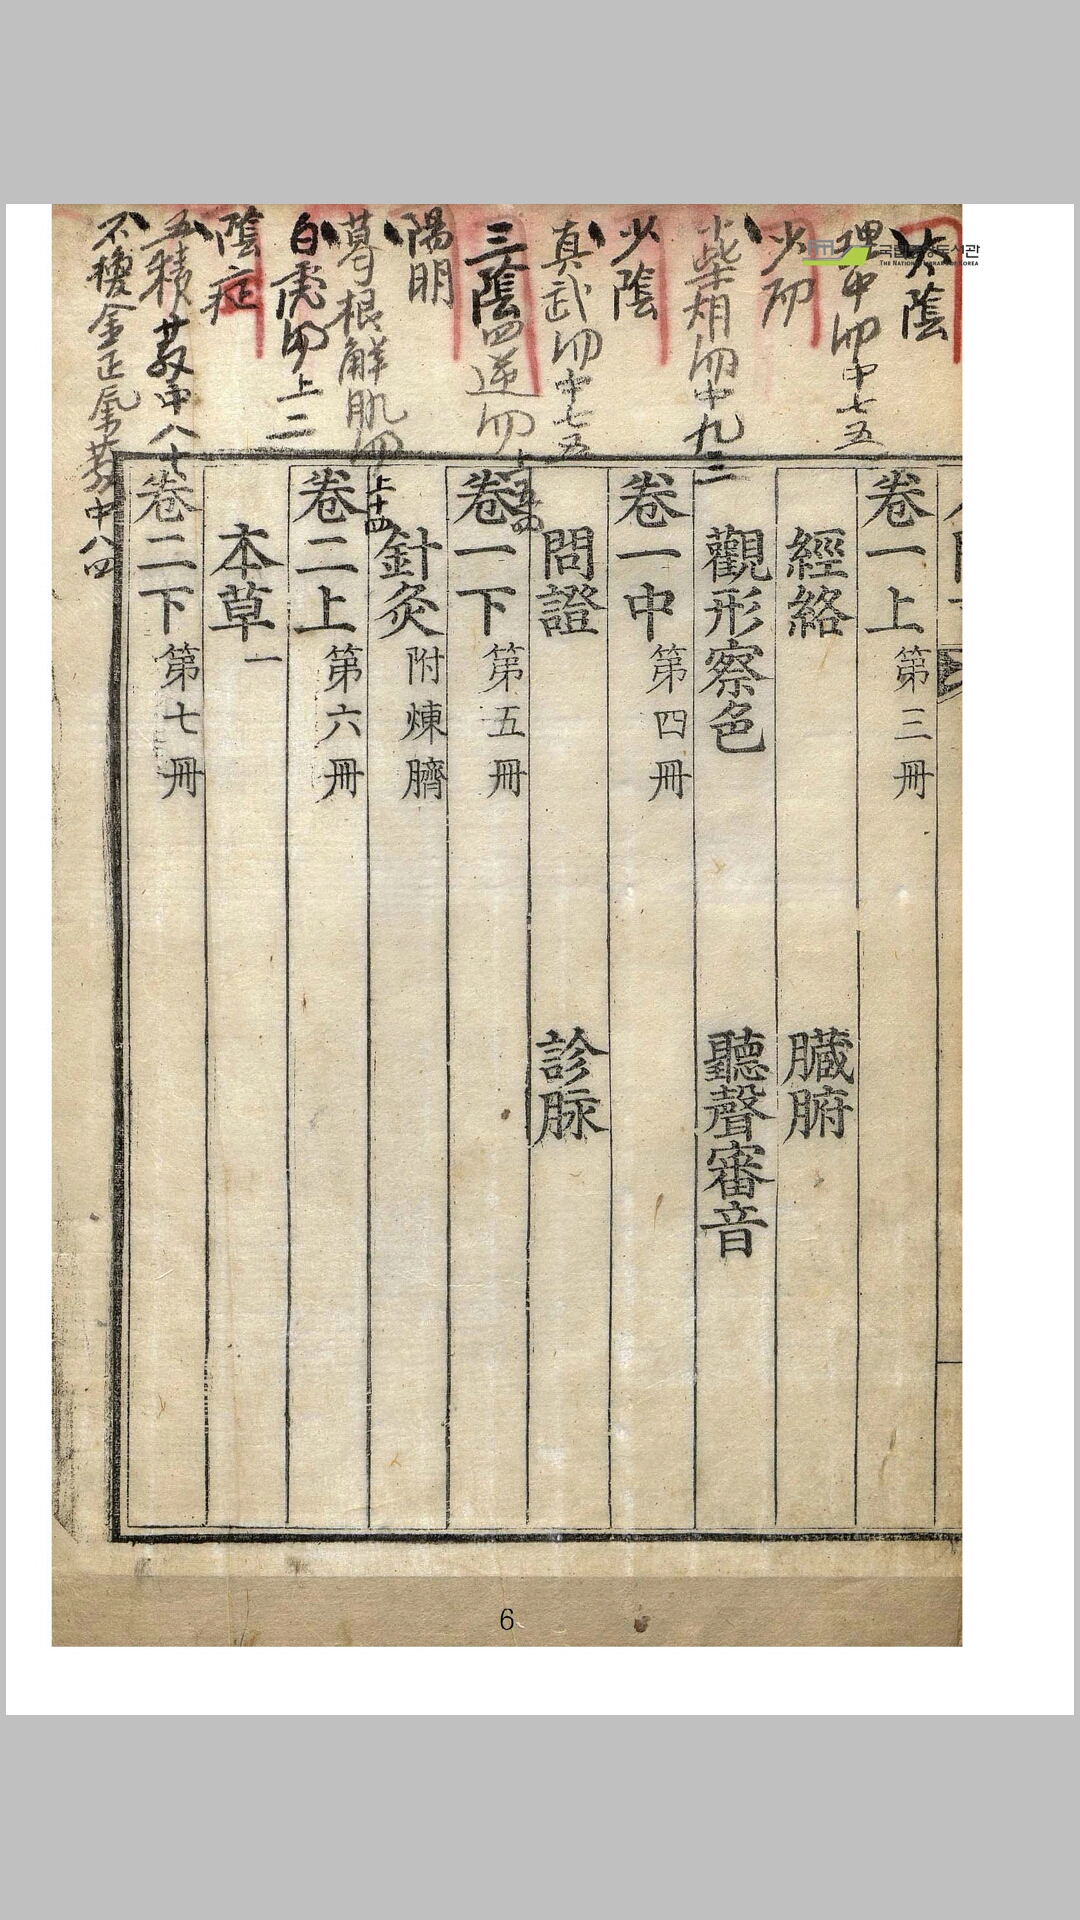 太陰
理中湯中七五
少陽
小柴胡湯中九三
少陰
真武湯中七五
三陰
四逆湯
陽明
葛根解肌湯上十四
白虎湯上二
陰症
五積散中八七
不換金正氣散中八四
卷一上 第三冊
經絡 臟腑
觀形察色 聽聲審音
卷一中 第四冊
問證 診脉
卷一下 第五冊
針灸 附煉臍
卷二上 第六冊
本草一
卷二下 第七冊
국립중앙도서관
THE NATIONAL LIBRARY OF KOREA
6